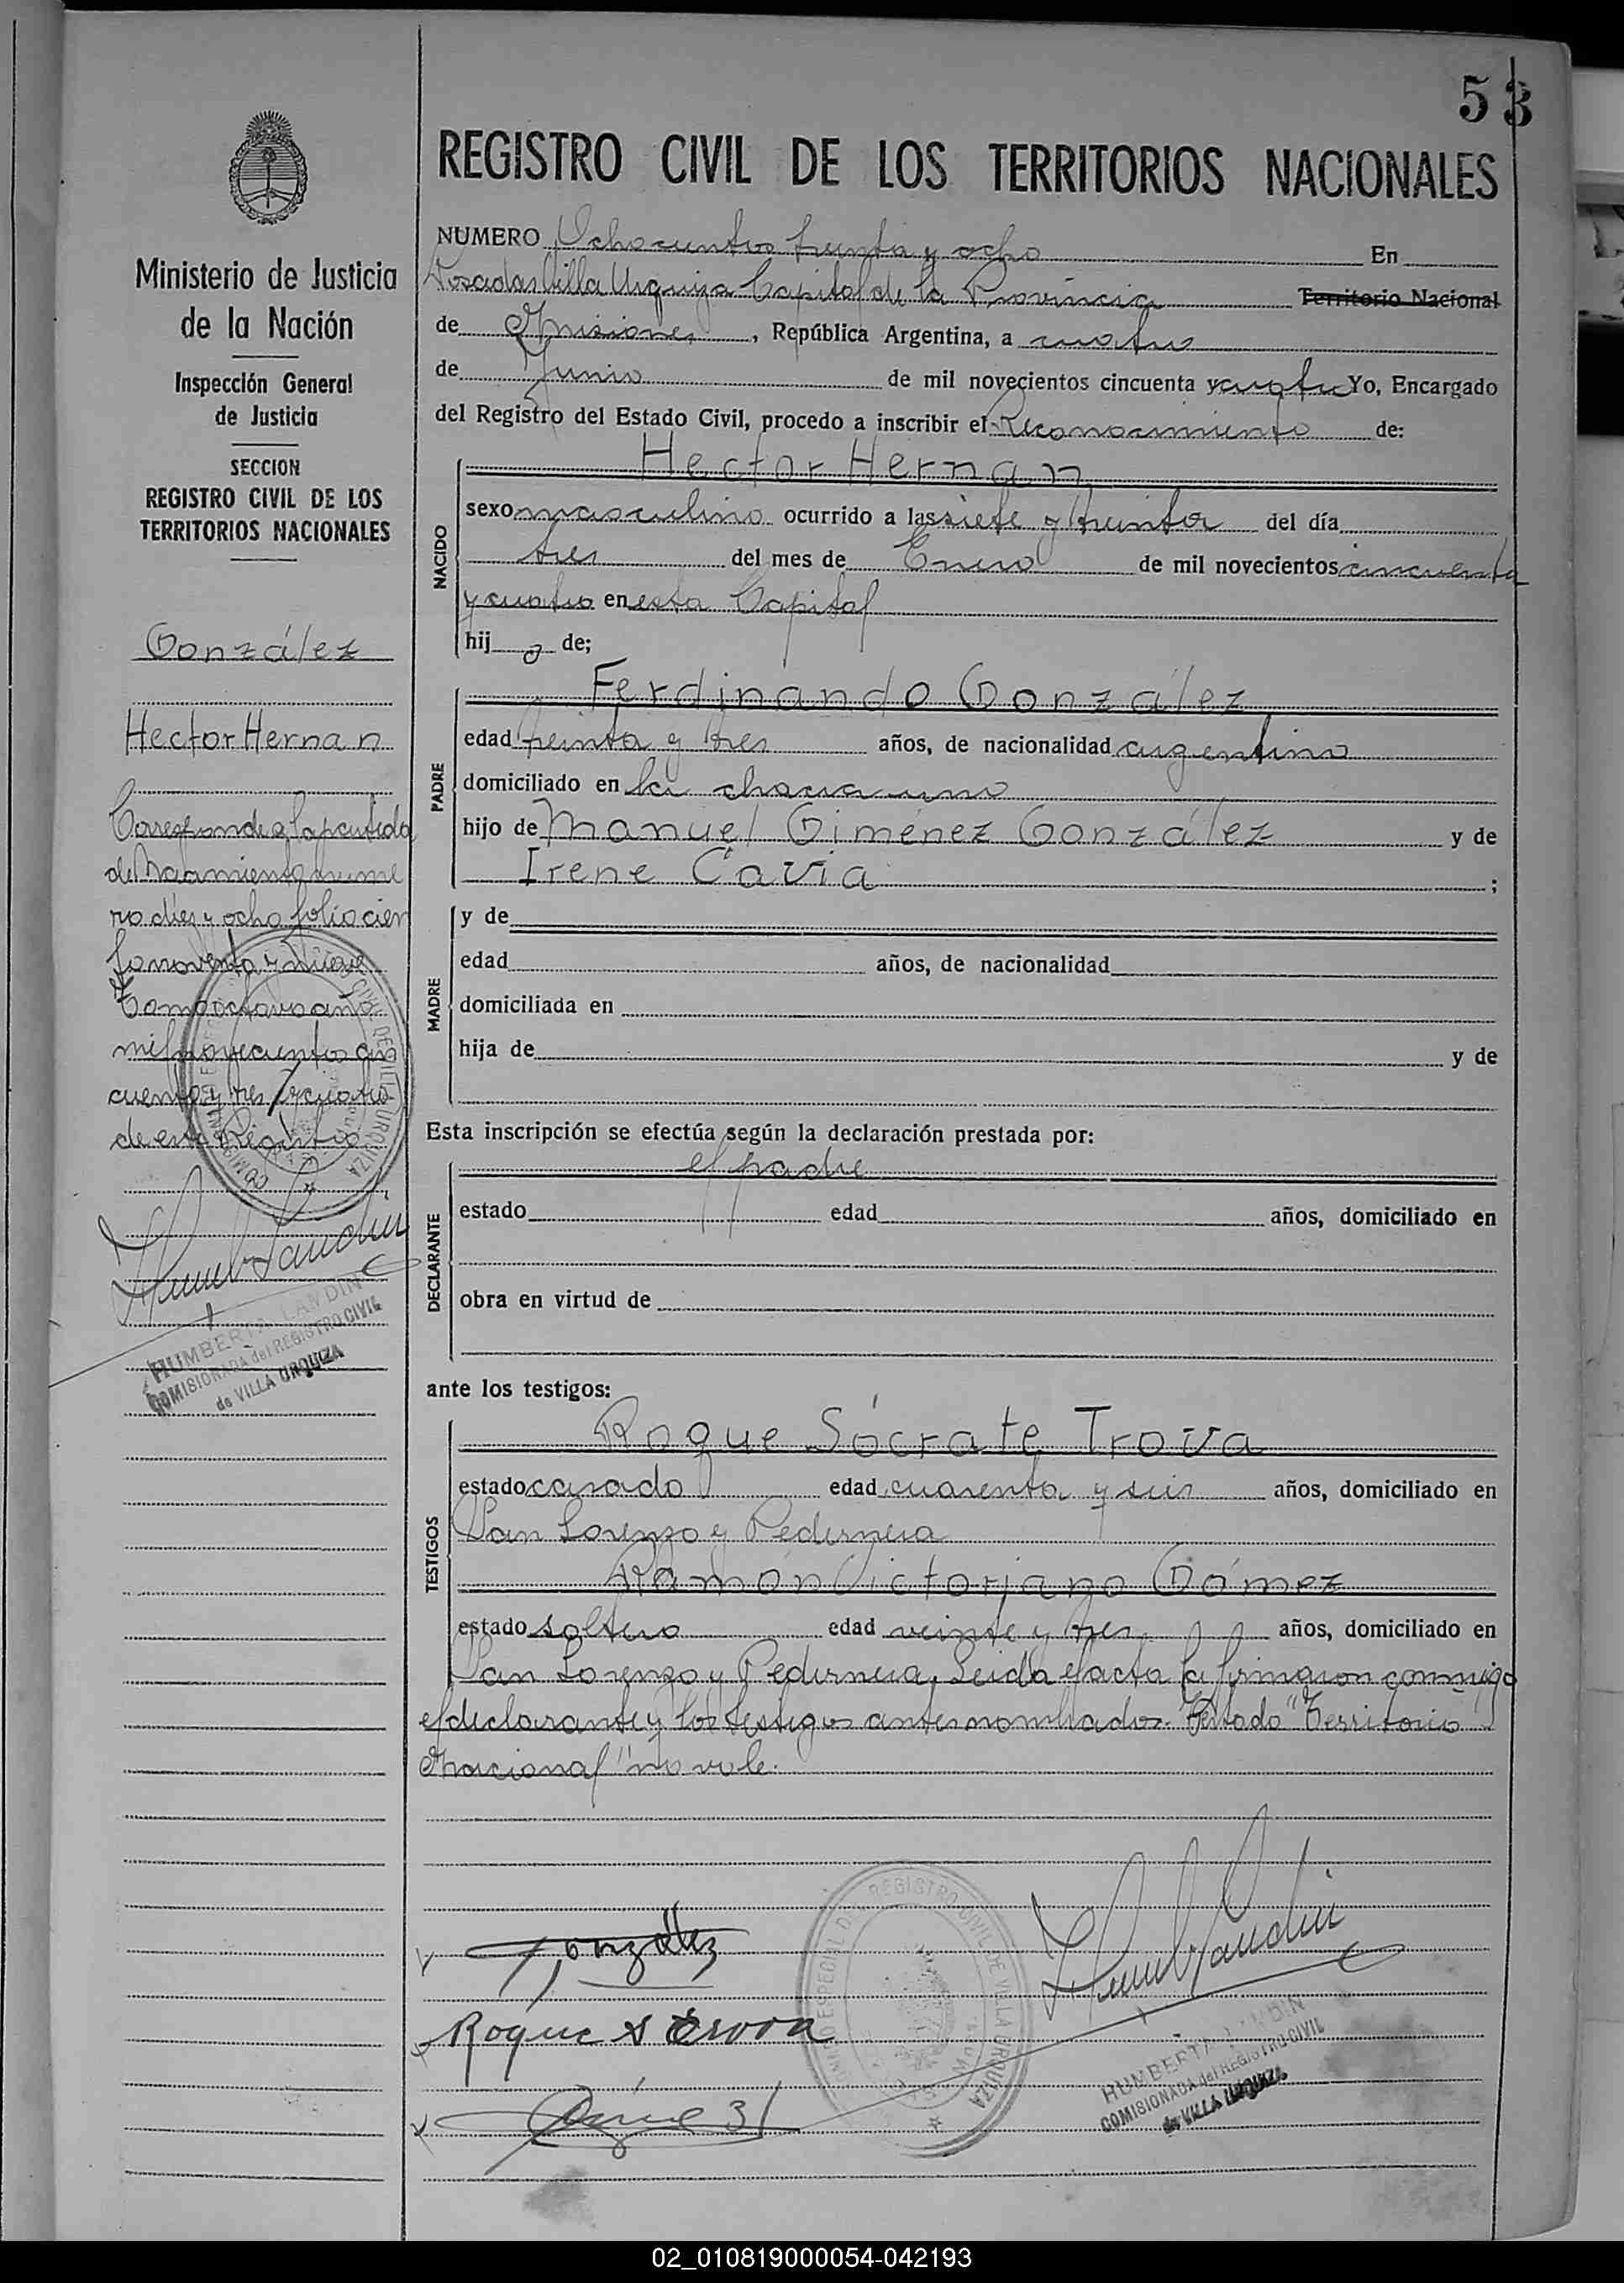 53
REGISTRO CIVIL DE LOS TERRITORIOS NACIONALES
Ministerio de Justicia
de la Nación
Inspección General
de Justicia
SECCION
REGISTRO CIVIL DE LOS
TERRITORIOS NACIONALES
González
Hector Hernan
Corresponde a la partida
de Nacimiento núme
ro diez y ocho folio cien
to noventa y nueve
Tomo octavo año
mil novecientos cin
cuenta y tres y cuatro
de este Registro
HUMBERTA LANDIN
COMISIONADA del REGISTRO CIVIL
de VILLA URQUIZA
NUMERO Ochocientos treinta y ocho En
Posadas Villa Urquiza Capital de la Provincia Territorio Nacional
de Misiones, República Argentina, a cuatro
de Junio de mil novecientos cincuenta y cuatro Yo, Encargado
del Registro del Estado Civil, procedo a inscribir el Reconocimiento de:
NACIDO
Hector Hernan
sexo masculino ocurrido a las siete y treinta del día
tres del mes de Enero de mil novecientos cincuenta
y cuatro en esta Capital
hij o de;
PADRE
Ferdinando González
edad treinta y tres años, de nacionalidad argentino
domiciliado en la chacra uno
hijo de Manuel Giménez González y de
Irene Cavia ;
MADRE
y de
edad años, de nacionalidad
domiciliada en
hija de y de
Esta inscripción se efectúa según la declaración prestada por:
DECLARANTE
el padre
estado edad años, domiciliado en
obra en virtud de
ante los testigos:
TESTIGOS
Roque Sócrate Trova
estado casado edad cuarenta y seis años, domiciliado en
San Lorenzo y Pedernera
Ramón Victoriano Gómez
estado soltero edad veinte y tres años, domiciliado en
San Lorenzo y Pedernera. Leida el acta la firmaron conmigo
el declarante y los testigos antes nombrados. Testado "Territorio
Nacional" no vale.
González
Roque S Trova
REGISTRO CIVIL DE VILLA URQUIZA
HUMBERTA LANDIN
COMISIONADA del REGISTRO CIVIL
de VILLA URQUIZA
02_010819000054-042193